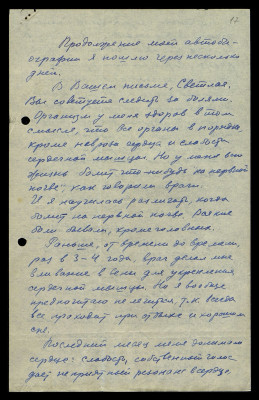 12
Продолжение моей автоби-
ографии я пошлю через несколько
дней.
В Вашем письме, Светлая,
Вы советуете следить за болями.
Организм у меня здоров в том
смысле, что все органы в порядке,
кроме невроза сердца и слабости
сердечной мышцы. Но у меня всю
жизнь болит что-нибудь на нервной
почве, как говорили врачи.
И я научилась различать, когда
болит на нервной почве. Всякие
боли бывали, кроме головных.
Раньше, от времени до времени,
раз в 3-4 года, врач делал мне
вливание в вены для укрепления
сердечной мышцы. Но я вообще
предпочитаю не лечиться, т.к. всегда
все проходит при отдыхе и хорошем
сне.
Последний месяц меня донимало
сердце: слабость, собственный голос
дает неприятный резонанс в сердце